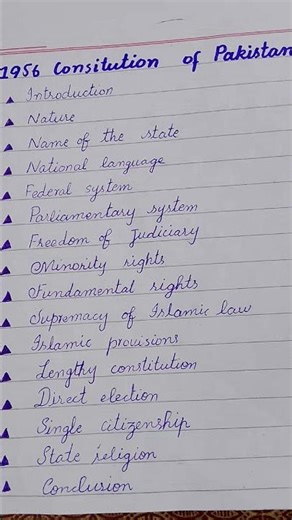 1956 Consitution of Pakistan
Introduction
Nature
Name of the state
National language
Federal system
Parliamentary system
Freedom of Judiciary
Minority rights
Fundamental rights
Supremacy of Islamic law
Islamic provisions
Lengthy constitution
Direct election
Single citizenship
State religion
Conclusion